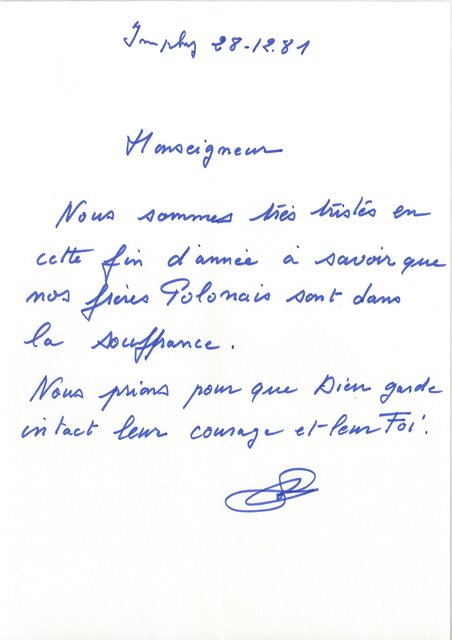 Imphy 28-12.81
Monseigneur
Nous sommes très tristes en
cette fin d'année à savoir que
nos frères Polonais sont dans
la souffrance.
Nous prions pour que Dieu garde
intact leur courage et leur Foi.